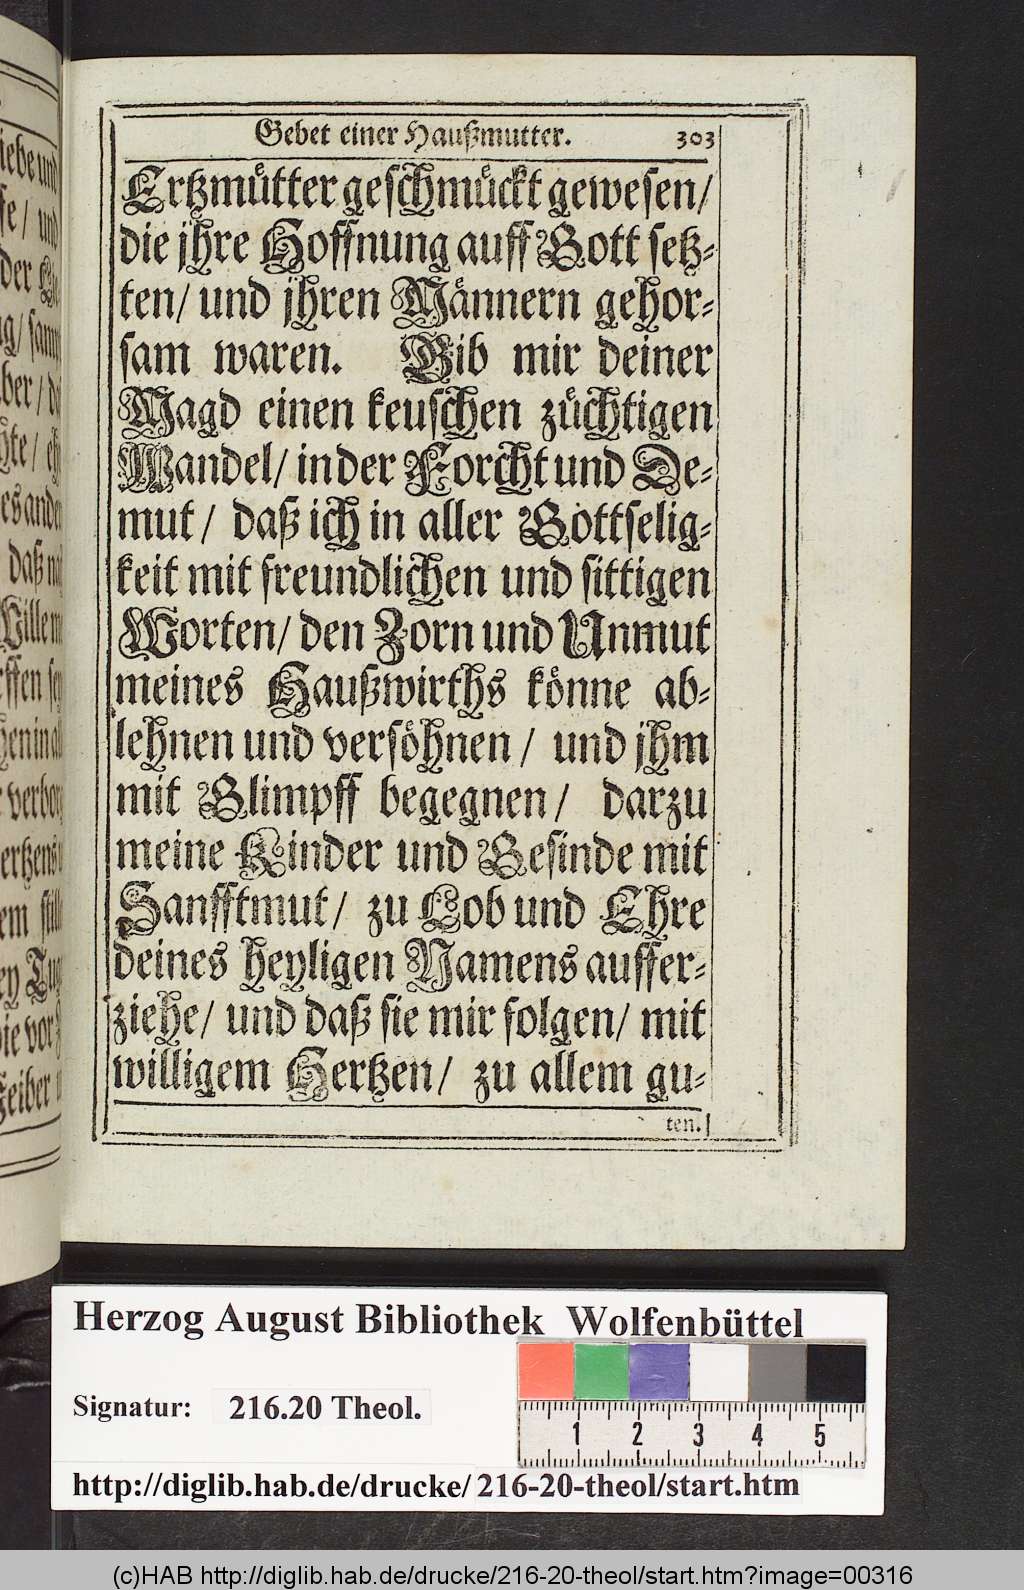 Gebet einer Haußmutter. 303
Ertzmütter geschmückt gewesen/
die jhre Hoffnung auff Gott setz-
ten/ und jhren Männern gehor-
sam waren. Gib mir deiner
Magd einen keuschen züchtigen
Wandel/ in der Forcht und De-
mut/ daß ich in aller Gottselig-
keit mit freundlichen und sittigen
Worten/ den Zorn und Unmut
meines Haußwirths könne ab-
lehnen und versöhnen/ und jhm
mit Glimpff begegnen/ darzu
meine Kinder und Gesinde mit
Sanfftmut/ zu Lob und Ehre
deines heyligen Namens auffer-
ziehe/ und daß sie mir folgen/ mit
willigem Hertzen/ zu allem gu-
ten.
Herzog August Bibliothek Wolfenbüttel
Signatur: 216.20 Theol.
1 2 3 4 5
http://diglib.hab.de/drucke/ 216-20-theol/start.htm
(c)HAB http://diglib.hab.de/drucke/216-20-theol/start.htm?image=00316